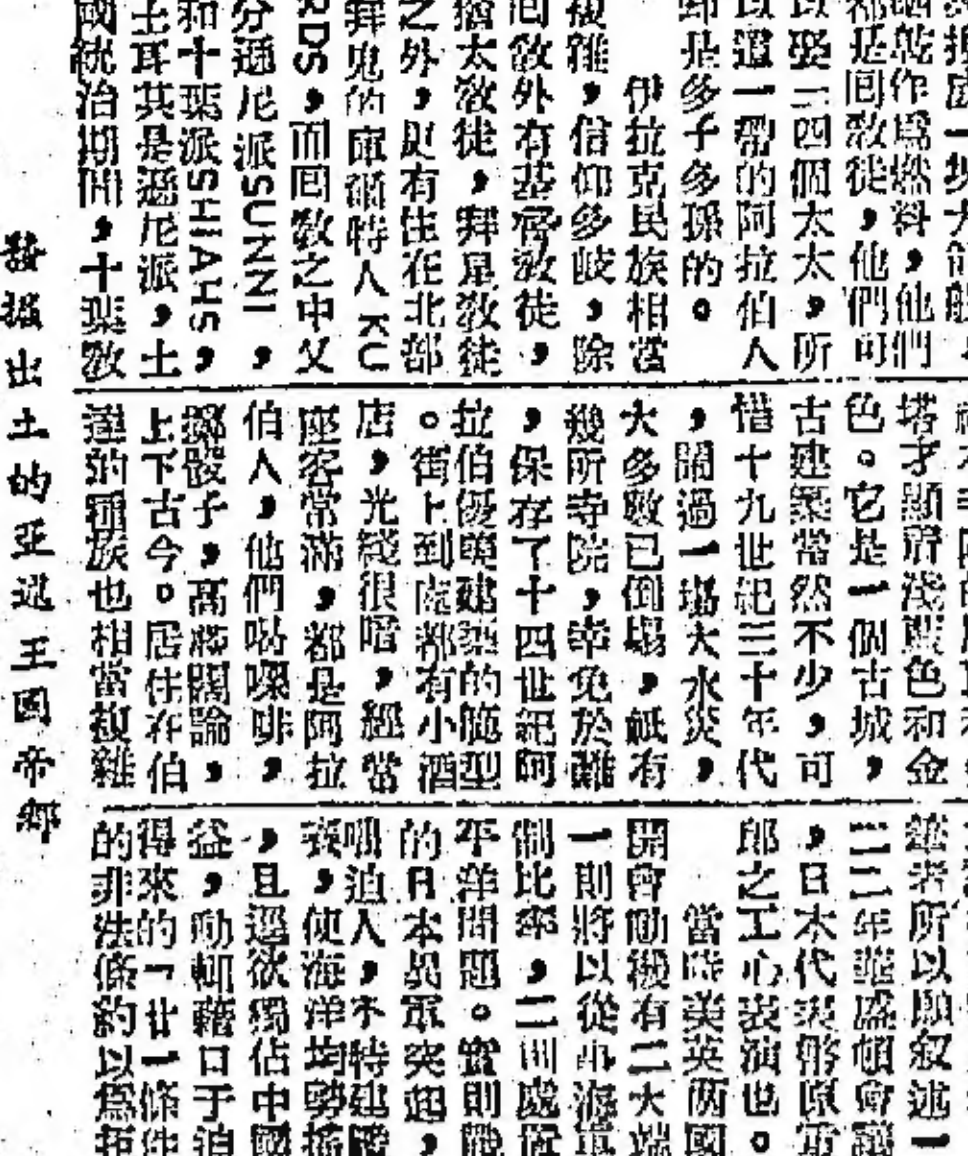 晒乾作爲燃料，他們
都是回敎徒，他們可
以娶二四個太太，所
以這一帶的阿拉伯人
却是多子多孫的。
伊拉克民族相當
複雜，信仰多歧，除
回敎外有基督敎徒，
猶太敎徒，拜星敎徒
之外，更有住在北部
拜鬼的庫爾特人KU
RDS，而回敎之中又
分遜尼派SUNNI，
和十葉派SHIAHS，
土耳其是遜尼派，土
國統治期間，十葉敎
塔才顯所淺藍色和金
色。它是一個古城，
古建築常然不少，可
惜十九世紀三十年代
，鬧過一場大水災，
大多數已倒塌，祇有
幾所寺院，幸免於難
，保存了十四世紀阿
拉伯優美建築的典型
。街上到處都有小酒
店，光綫很暗，經常
座客常滿，都是阿拉
伯人，他們喝㗎啡，
擲骰子，高談闊論，
上下古今。居住在伯
達的種族也相當複雜
筆者所以願叙述一
二二年華盛頓會議
，日本代表幣原
郎之工心表演也。
當時美英两國
開會動機有二大端
一則將以從事海軍
制比率，二則處置
平洋問題。實則戰
的日本異軍突起，
咄迫人，不特建
喪，使海洋均勢搖
，且還欲獨佔中國
益，動輒藉口于
得來的「廿一條件
的非法條約以爲
發掘出土的亞述王國帝鄉